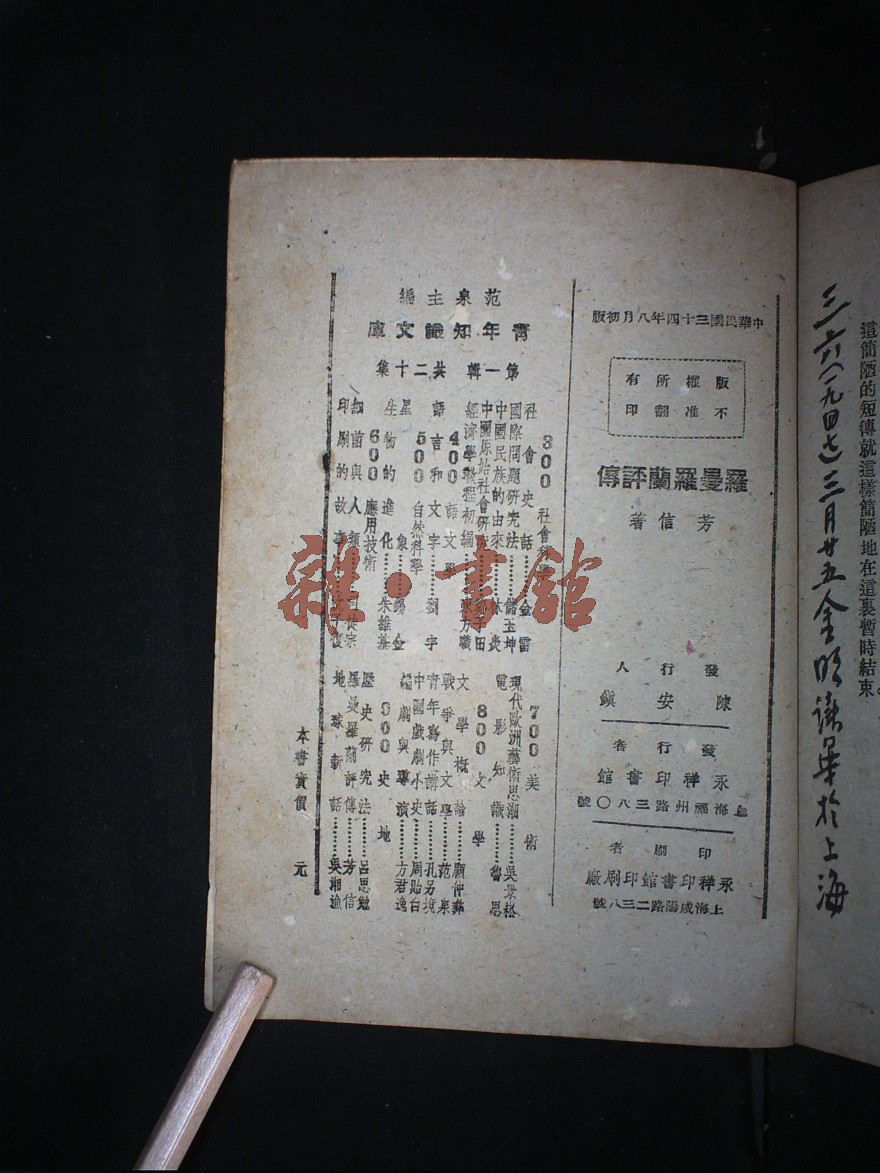 這簡陋的短傳就這樣簡陋地在這裏暫時結束。
三六(一九四七)三月廿五
於上海
中華民國三十四年八月初版
版權所有
不准翻印
羅曼羅蘭評傳
芳信著
發行人
陳安鎮
發行者
永祥印書館
上海福州路三八〇號
印刷者
永祥印書館印刷廠
上海咸陽路二三八號
范泉主編
青年知識文庫
第一輯 共二十集
300 社會科學
社會史話………金雷
國際問題研究法………儲玉坤
中國民族的由來………林炎
中國原始社會研究
經濟學教程初編
400 語文學
語言和文字………劉字
500 自然科學
星象………錫金
生物的進化………朱維基
600 應用技術
細菌與人類
印刷的故事
700 美術
現代歐洲藝術思潮………吳景崧
電影知識………魯思
800 文學
文學概論………顧仲彝
戰爭與文學………范泉
青年寫作講話………孔另境
中國戲劇小史………周貽白
編劇與導演………方君逸
900 史地
歷史研究法………呂思勉
羅曼羅蘭評傳………芳信
地球新話………吳湘漁
本書實價 元
雜·書館